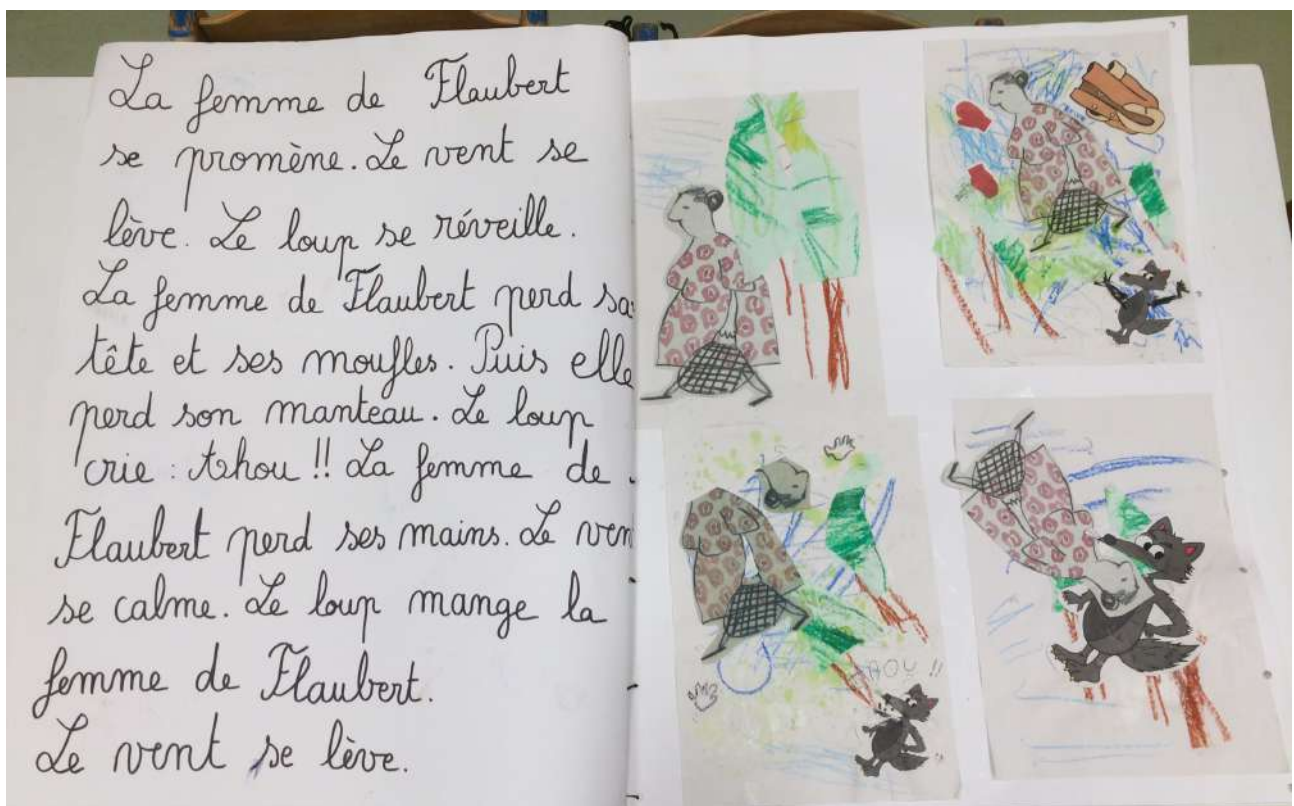 La femme de Flaubert
se promène. Le vent se
lève. Le loup se réveille.
La femme de Flaubert perd sa
tête et ses moufles. Puis elle
perd son manteau. Le loup
crie : Ahou !! La femme de
Flaubert perd ses mains. Le ven
se calme. Le loup mange la
femme de Flaubert.
Le vent se lève.
AOU !!